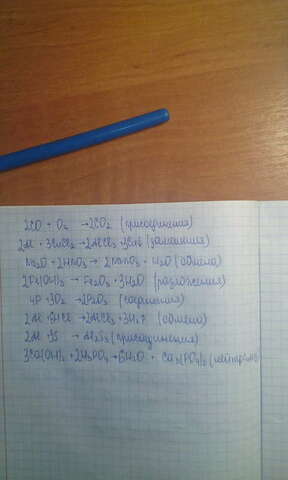 2CO + O₂ → 2CO₂ (присоединения)
2Al + 3CuCl₂ → 2AlCl₃ + 3Cu (замещения)
Na₂O + 2HNO₃ → 2NaNO₃ + H₂O (обмена)
2Fe(OH)₃ → Fe₂O₃ + 3H₂O (разложения)
4P + 5O₂ → 2P₂O₅
2Al + 6HCl → 2AlCl₃ + 3H₂↑ (обмена)
2Al + 3S → Al₂S₃ (присоединения)
3Ca(OH)₂ + 2H₃PO₄ → 6H₂O + Ca₃(PO₄)₂